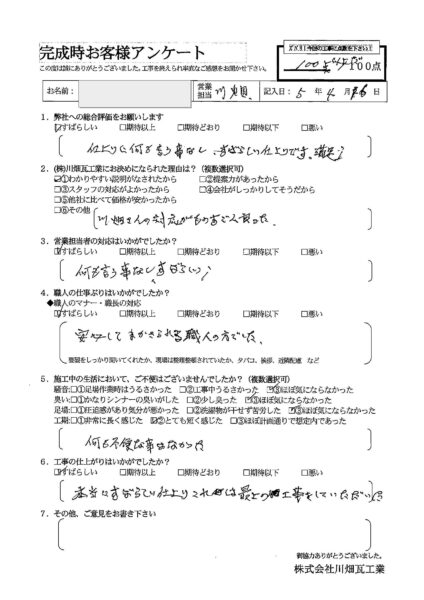 完成時お客様アンケート
この度は誠にありがとうございました。工事を終えられ率直なご感想をお聞かせ下さい。
ズバリ!今回の工事に点数を下さい!
100点
お名前：
営業担当
川畑
記入日：5年4月26日
1．弊社への総合評価をお願いします
☑すばらしい □期待以上 □期待どおり □期待以下 □悪い
仕上りに何も言う事なし、すばらしい仕上りです。満足!
2．(株)川畑瓦工業にお決めになられた理由は？（複数選択可）
☑①わかりやすい説明がなされたから □②提案力があったから
□③スタッフの対応がよかったから □④会社がしっかりしてそうだから
□⑤他社に比べて価格が安かったから
□⑥その他
川畑さんの対応が
3．営業担当者の対応はいかがでしたか？
☑すばらしい □期待以上 □期待どおり □期待以下 □悪い
何も言う事なしすばらしい!
4．職人の仕事ぶりはいかがでしたか？
◆職人のマナー・職長の対応
☑すばらしい □期待以上 □期待どおり □期待以下 □悪い
安心してまかさられる職人の方でした。
要望をしっかり聞いてくれたか、現場は整理整頓されていたか、タバコ、挨拶、近隣配慮 など
5．施工中の生活において、ご不便はございませんでしたか？（複数選択可）
騒音:□①足場作業時はうるさかった □②工事中うるさかった ☑③ほぼ気にならなかった
臭い:□①かなりシンナーの臭いがした □②少し臭った ☑③ほぼ気にならなかった
足場:□①圧迫感があり気分が悪かった □②洗濯物が干せず苦労した ☑③ほぼ気にならなかった
工期:□①非常に長く感じた ☑②とても短く感じた □③ほぼ計画通りで想定内であった
何も不便な事はなかった
6．工事の仕上がりはいかがでしたか？
☑すばらしい □期待以上 □期待どおり □期待以下 □悪い
本当にすばらしい仕上り 最上の工事をしていただいた
7．その他、ご意見をお書き下さい
御協力ありがとうございました。
株式会社川畑瓦工業